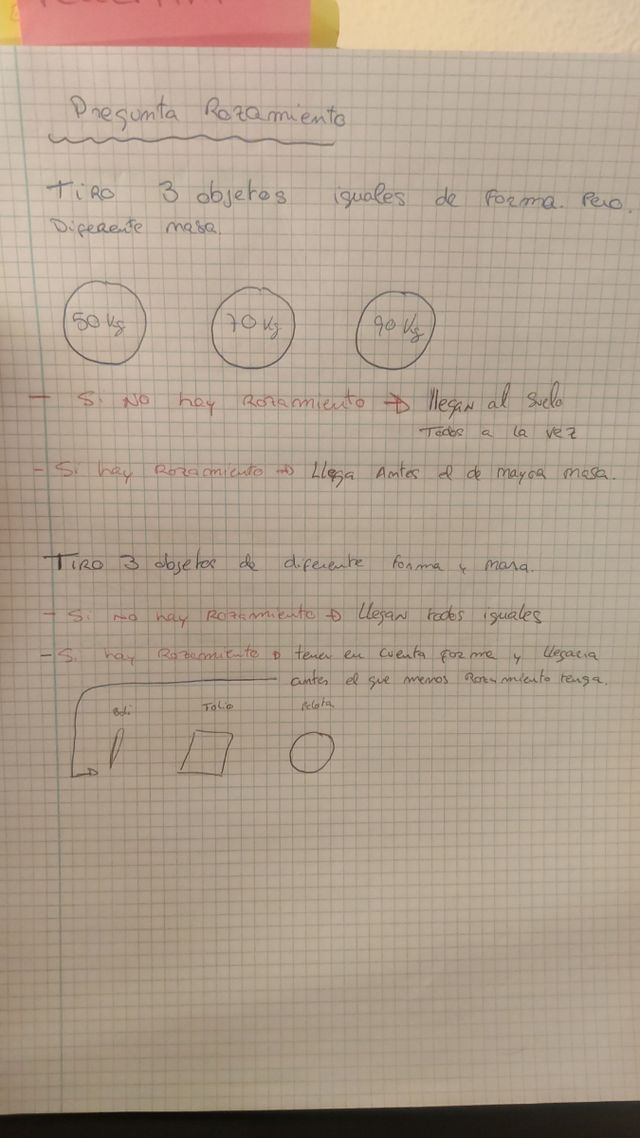 Pregunta Rozamiento
Tiro 3 objetos iguales de forma. Pero.
Diferente masa.
50 Kg 70 Kg 90 Kg
- Si NO hay Rozamiento → llegan al suelo
Todos a la vez
- Si hay Rozamiento → Llega Antes el de mayor masa.
Tiro 3 objetos de diferente forma y masa.
- Si no hay Rozamiento → llegan todos iguales
- Si hay Rozamiento → tener en cuenta forma y llegaria
antes el que menos Rozamiento tenga.
Boli Folio Pelota